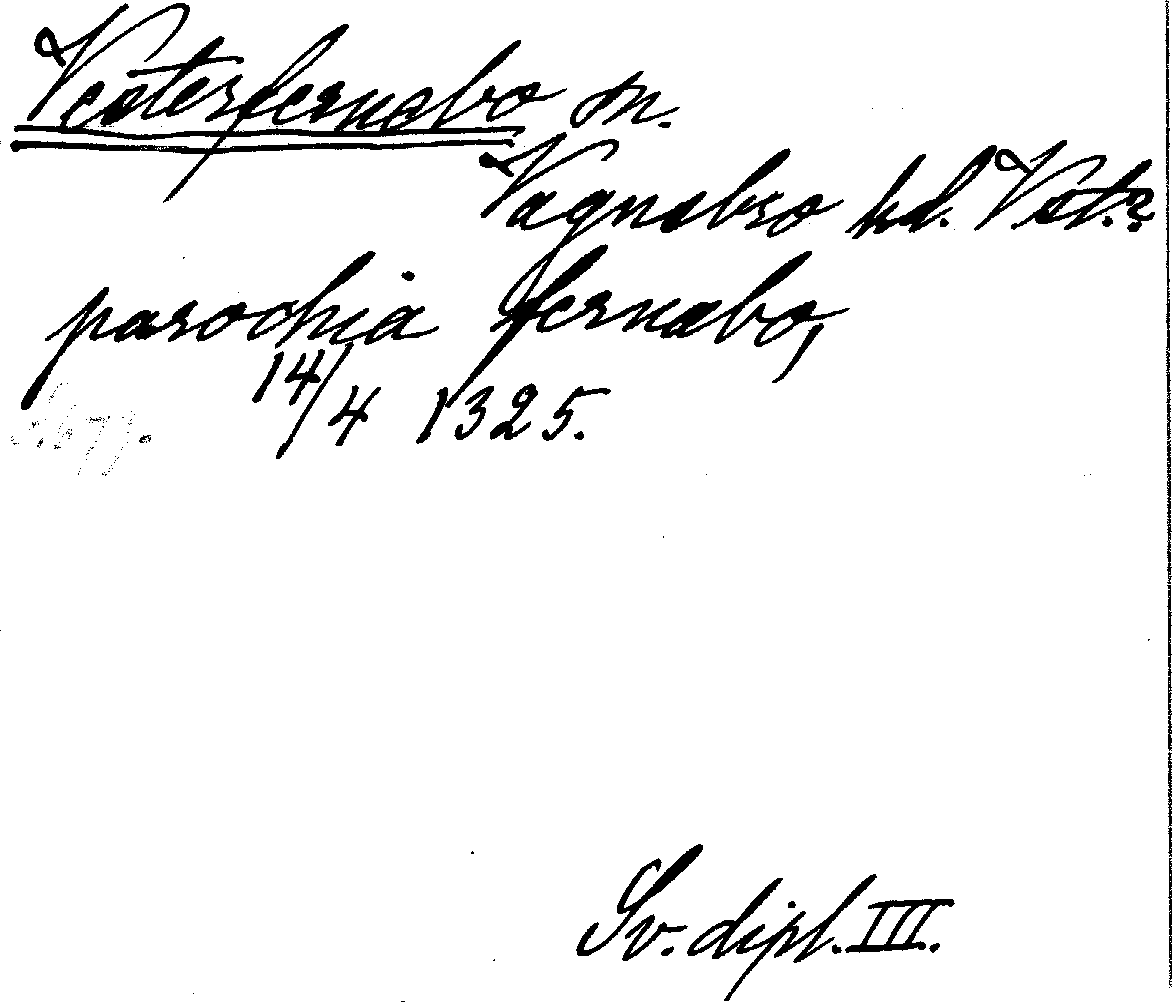 Vesterfernebo sn.
Vagnsbro hd. Vst.
parochia fernæbo,
14/4 1325.
Sv. dipl. III.